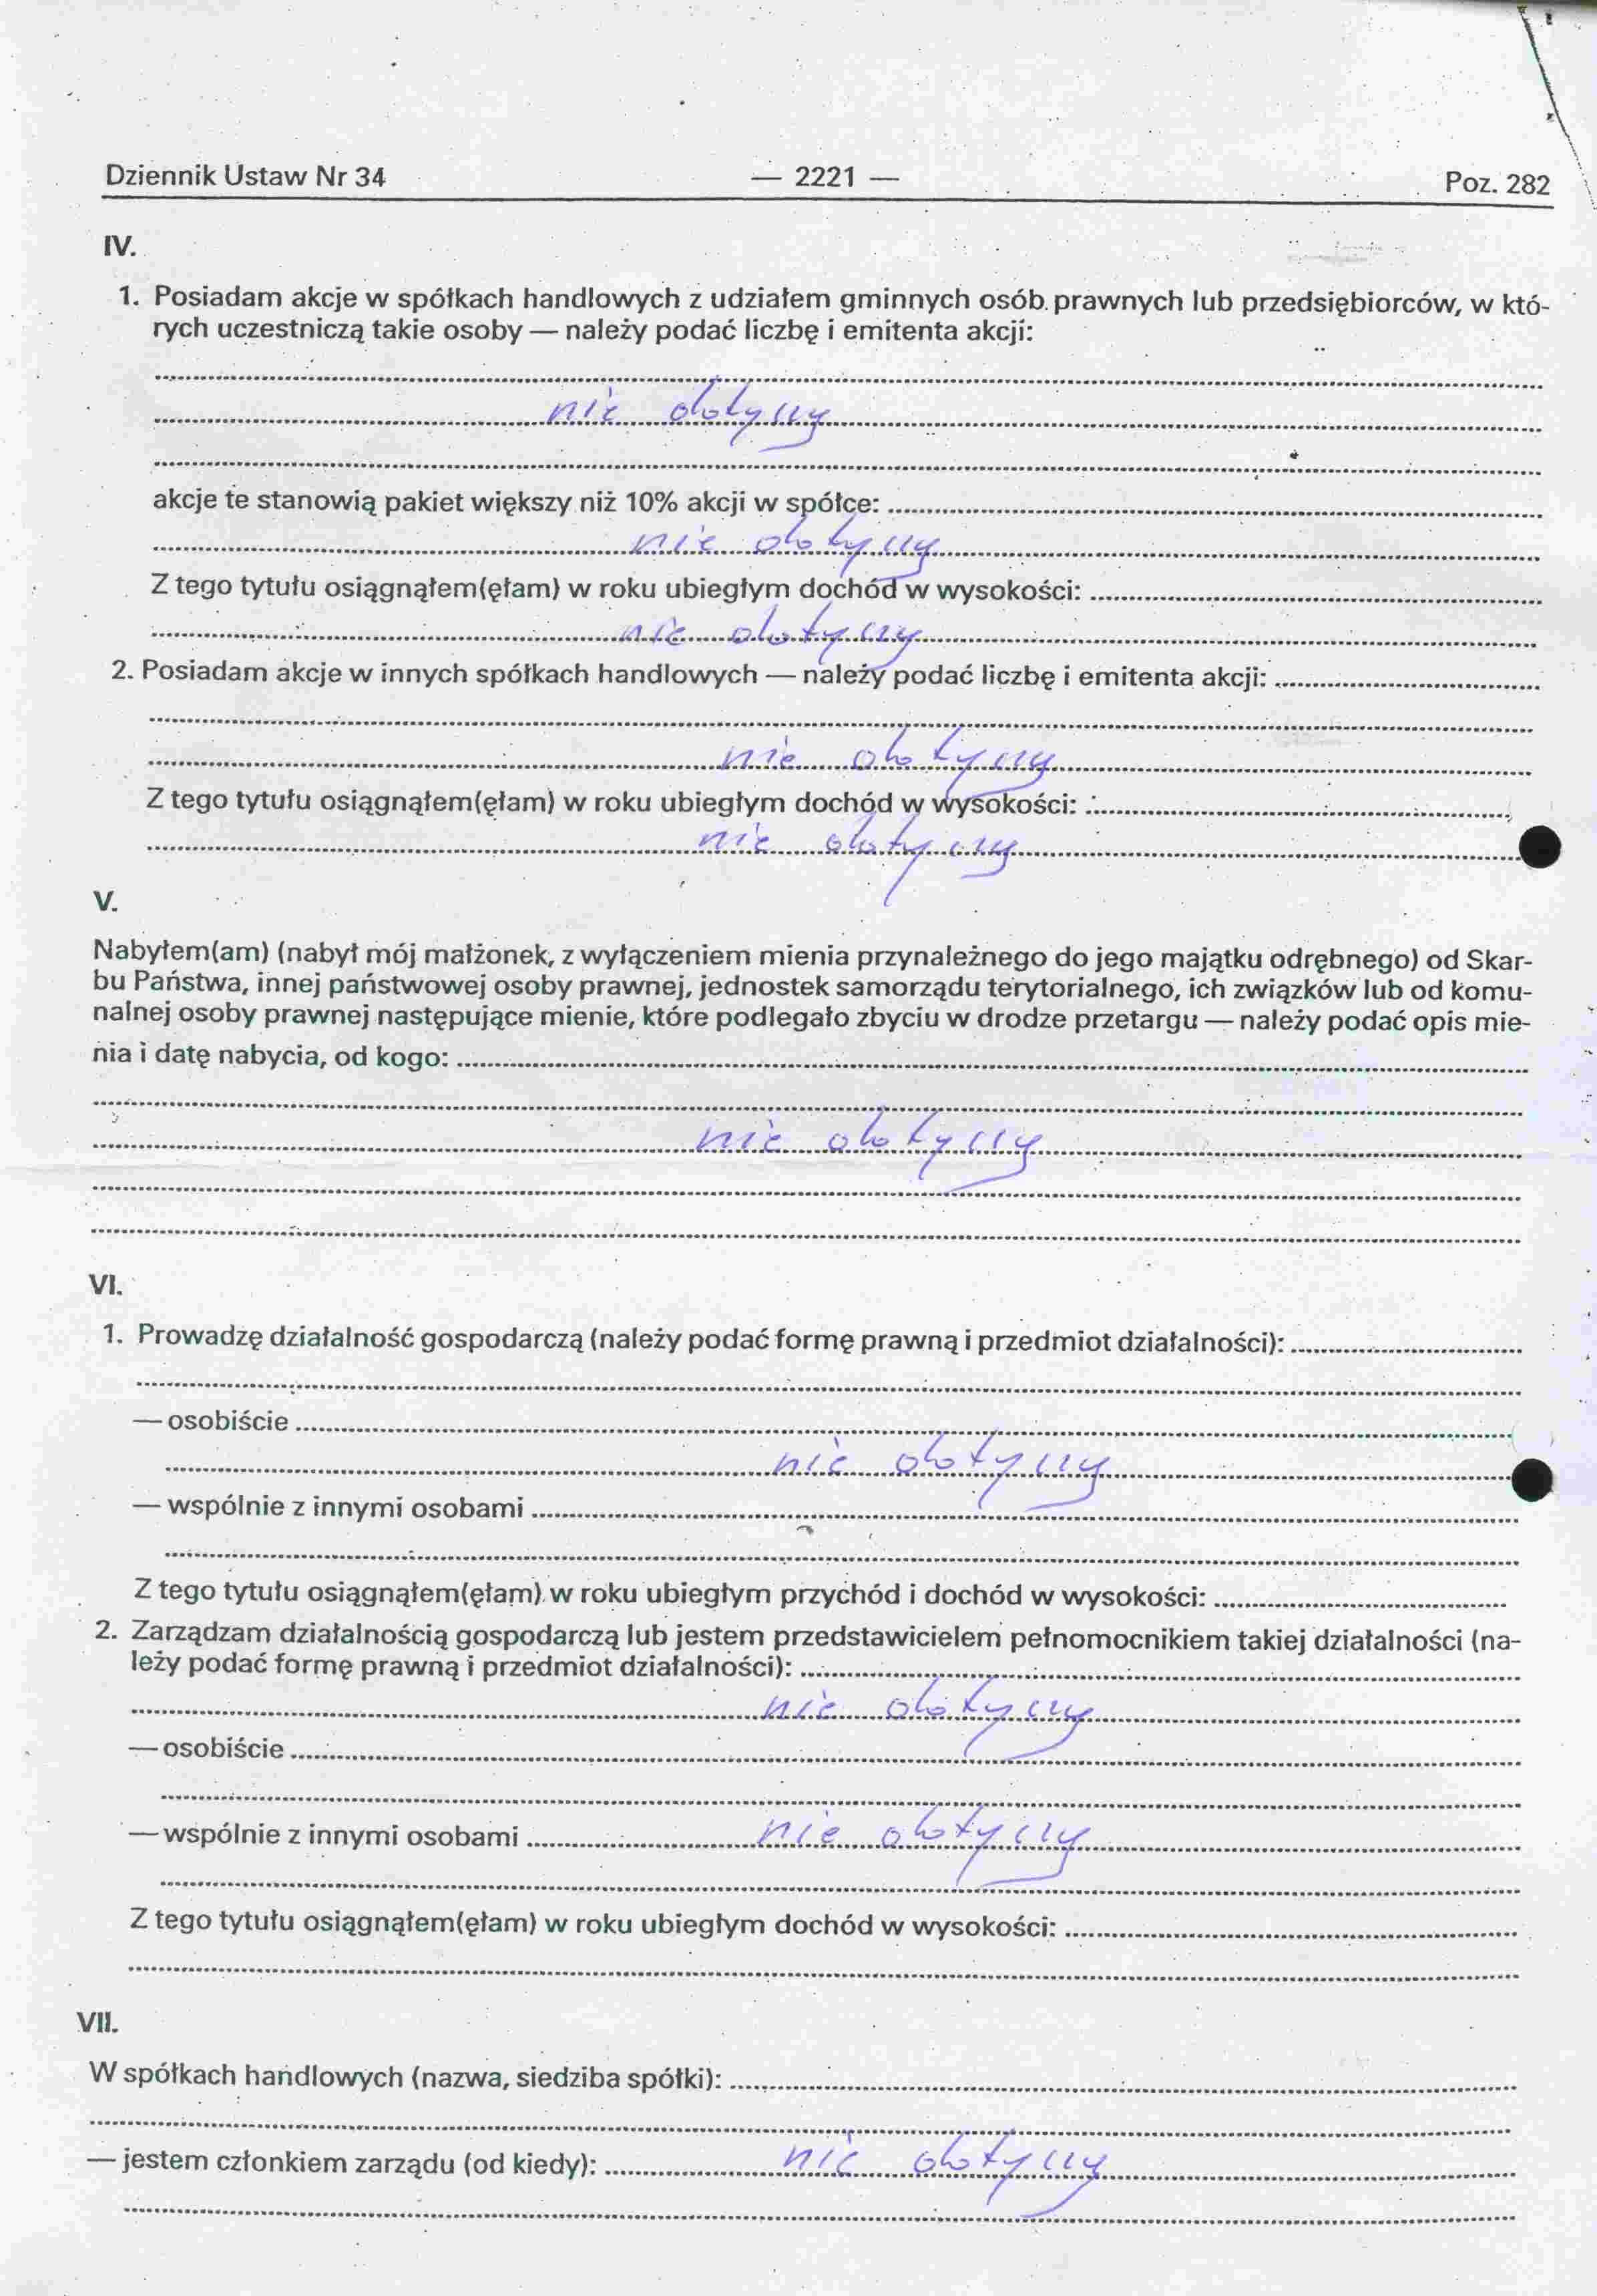 Dziennik Ustaw Nr 34 — 2221 — Poz. 282
IV.
1. Posiadam akcje w spółkach handlowych z udziałem gminnych osób prawnych lub przedsiębiorców, w któ-
rych uczestniczą takie osoby — należy podać liczbę i emitenta akcji:
nie dotyczy
akcje te stanowią pakiet większy niż 10% akcji w spółce:
nie dotyczy
Z tego tytułu osiągnąłem(ęłam) w roku ubiegłym dochód w wysokości:
nie dotyczy
2. Posiadam akcje w innych spółkach handlowych — należy podać liczbę i emitenta akcji:
nie dotyczy
Z tego tytułu osiągnąłem(ęłam) w roku ubiegłym dochód w wysokości:
nie dotyczy
V.
Nabyłem(am) (nabył mój małżonek, z wyłączeniem mienia przynależnego do jego majątku odrębnego) od Skar-
bu Państwa, innej państwowej osoby prawnej, jednostek samorządu terytorialnego, ich związków lub od komu-
nalnej osoby prawnej następujące mienie, które podlegało zbyciu w drodze przetargu — należy podać opis mie-
nia i datę nabycia, od kogo:
nie dotyczy
VI.
1. Prowadzę działalność gospodarczą (należy podać formę prawną i przedmiot działalności):
— osobiście
nie dotyczy
— wspólnie z innymi osobami
Z tego tytułu osiągnąłem(ęłam) w roku ubiegłym przychód i dochód w wysokości:
2. Zarządzam działalnością gospodarczą lub jestem przedstawicielem pełnomocnikiem takiej działalności (na-
leży podać formę prawną i przedmiot działalności):
nie dotyczy
— osobiście
— wspólnie z innymi osobami nie dotyczy
Z tego tytułu osiągnąłem(ęłam) w roku ubiegłym dochód w wysokości:
VII.
W spółkach handlowych (nazwa, siedziba spółki):
— jestem członkiem zarządu (od kiedy): nie dotyczy